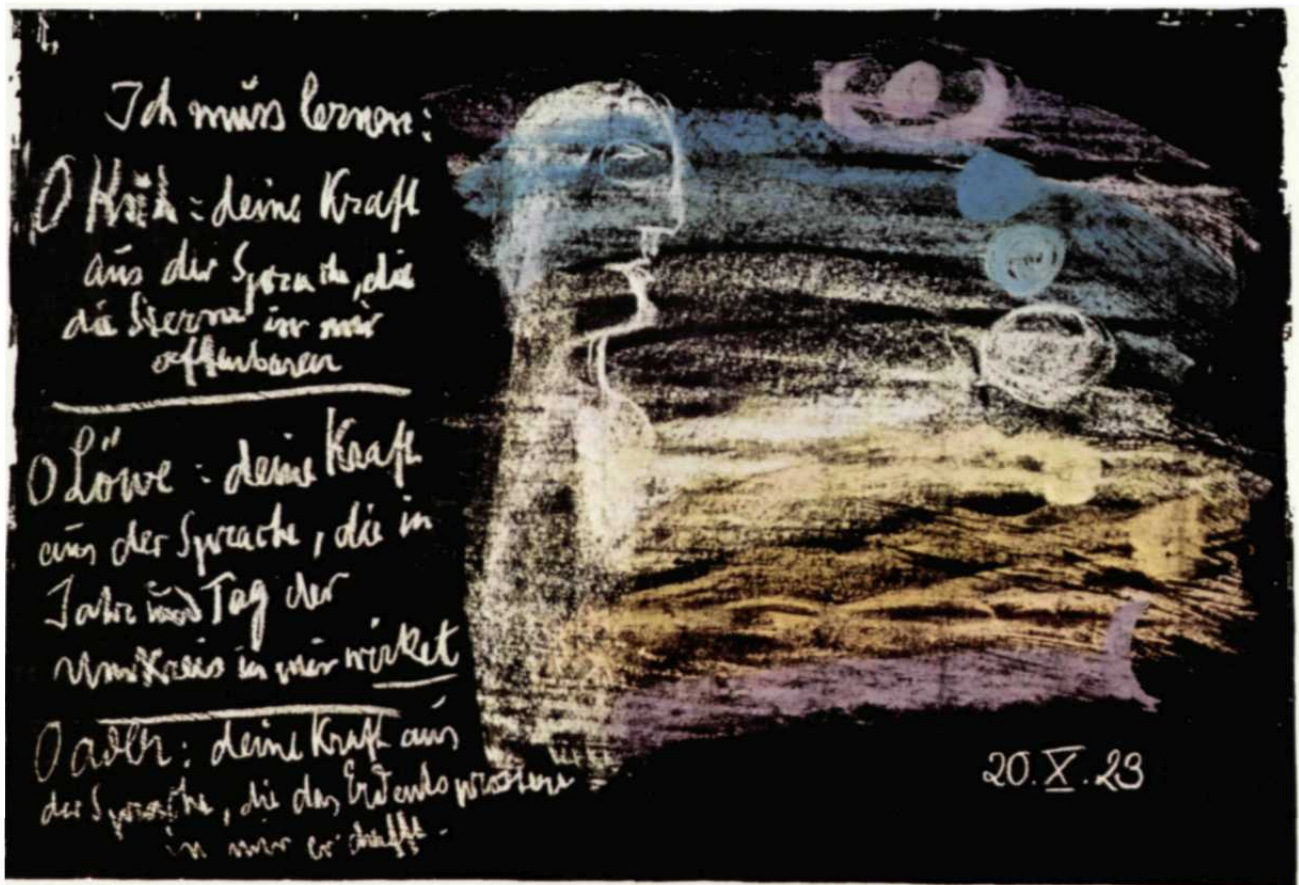 Ich muss lernen:
O Kuh: deine Kraft
aus der Sprache, die
die Sterne in mir
offenbaren
O Löwe: deine Kraft
aus der Sprache, die in
Jahr und Tag der
Umkreis in mir wirket
O Adler: deine Kraft aus
der Sprache, die das Erdentsprossene
in mir erschafft.
20.X.23